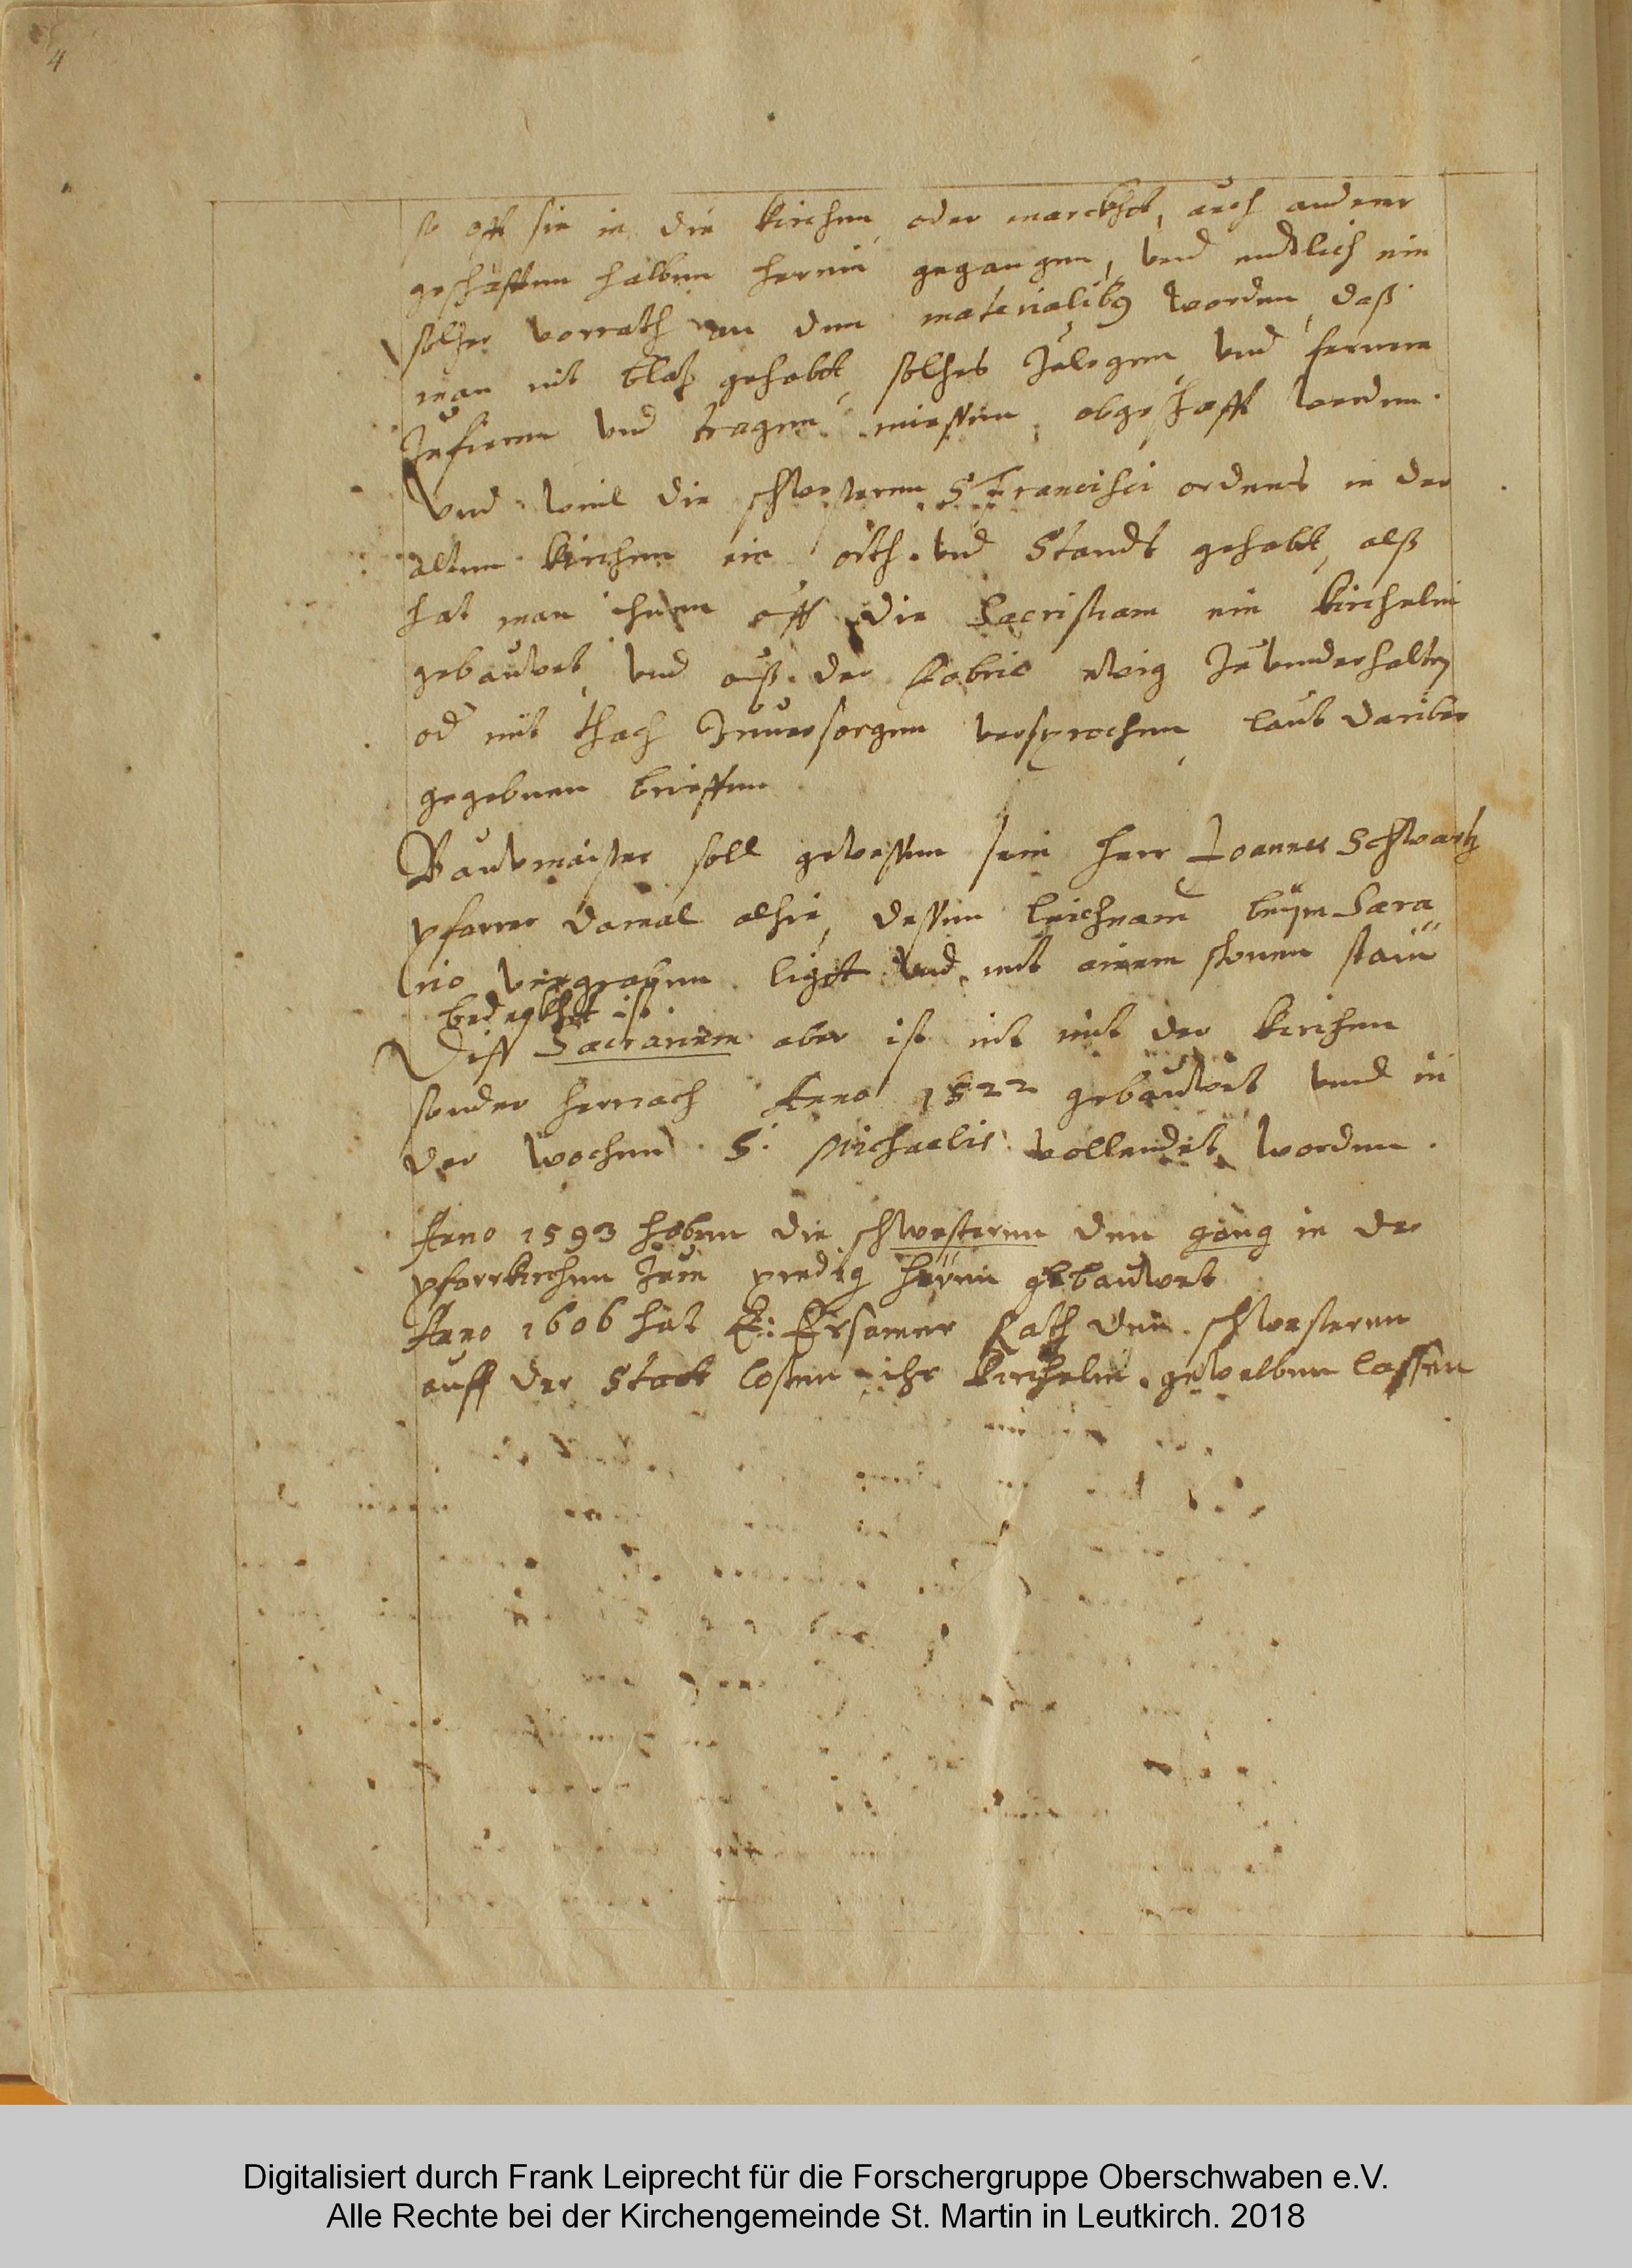 4
so offt sie in die kirchen oder marckht, auch anderer
geschäfften halben herein gegangen, und endtlich ein
solher vorrath an den materialibus worden, daß
man nit blaß gehabt, solhes Zulegen und fernere
Zufieren und tragen miessen abgeschafft werden.
Und weil die schwesteren S Francisci ordens in der
alten kirchen ein orth und Standt gehabt, alß
hat man ihnen auff die Sacristiam ein kirchelin
gebauwet, und auß der Fabric ewig Zu underhalten
od mit thach Zuuersorgen versprochen, laut dariber
gegebnen brieffen
Bauwmaister soll gewessen sein herr Joannes Schwartz
pfarrer damal alhie, dessen leichnam beym Sacra
rio vergraben ligt und mit einem stain
bedeckht ist
Diss Sacrarium aber ist nit mit der kirchen
sonder hernach Anno 1522 gebauwet und in
der wochen S. Michaelis vollendet worden.
Anno 1593 haben die schwesteren den gang in der
pfarrkirchen Zum predig heren gebauwet
Anno 1606 hat E: Ersamer Rath den schwesteren
auff der Statt costen ihr kirchelin gewelben lassen
Digitalisiert durch Frank Leiprecht für die Forschergruppe Oberschwaben e.V.
Alle Rechte bei der Kirchengemeinde St. Martin in Leutkirch. 2018